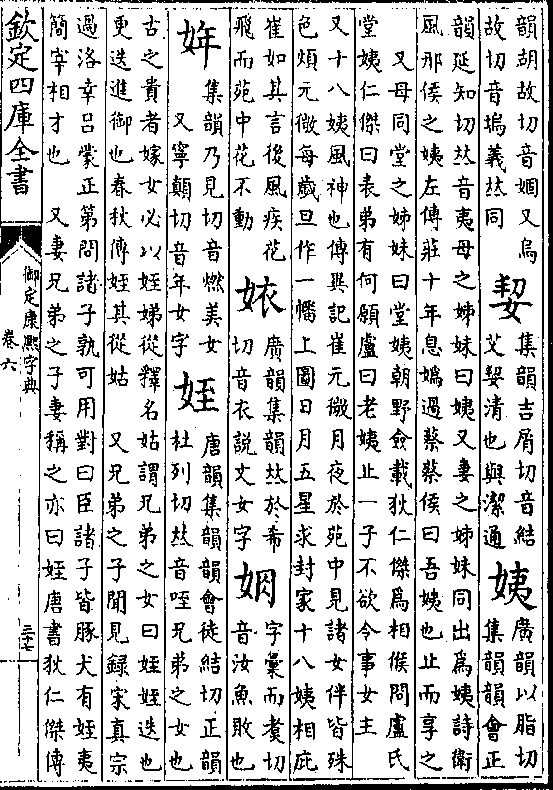 韻胡故切音婟又烏
故切音塢義𠀤同
㛃
集韻吉屑切音結
丈㛃清也與潔通
姨
廣韻以脂切
集韻韻會正
韻延知切𠀤音夷母之姊妹曰姨又妻之姊妹同出爲姨詩衛
風那侯之姨左傳莊十年息嬀過蔡蔡侯曰吾姨也止而享之
又母同堂之姊妹曰堂姨朝野僉載狄仁傑爲相候問盧氏
堂姨仁傑曰表弟有何願盧曰老姨止一子不欲令事女主
又十八姨風神也傳異記崔元微月夜於苑中見諸女伴皆殊
色煩元微每歲旦作一幡上圖日月五星求封家十八姨相庇
崔如其言後風疾花
飛而苑中花不動
㛄
廣韻集韻𠀤於希
切音衣說文女字
㛅
字彙而煑切
音汝魚敗也
姩
集韻乃見切音燃美女
又寧顛切音年女字
姪
唐韻集韻韻會徒結切正韻
杜列切𠀤音咥兄弟之女也
古之貴者嫁女必以姪娣從釋名姑謂兄弟之女曰姪姪迭也
更迭進御也春秋傳姪其從姑 又兄弟之子聞見錄宋真宗
過洛幸呂蒙正第問諸子孰可用對曰臣諸子皆豚犬有姪夷
簡宰相才也 又妻兄弟之子妻稱之亦曰姪唐書狄仁傑傳
欽定四庫全書
御定康熙字典
卷六
三十七